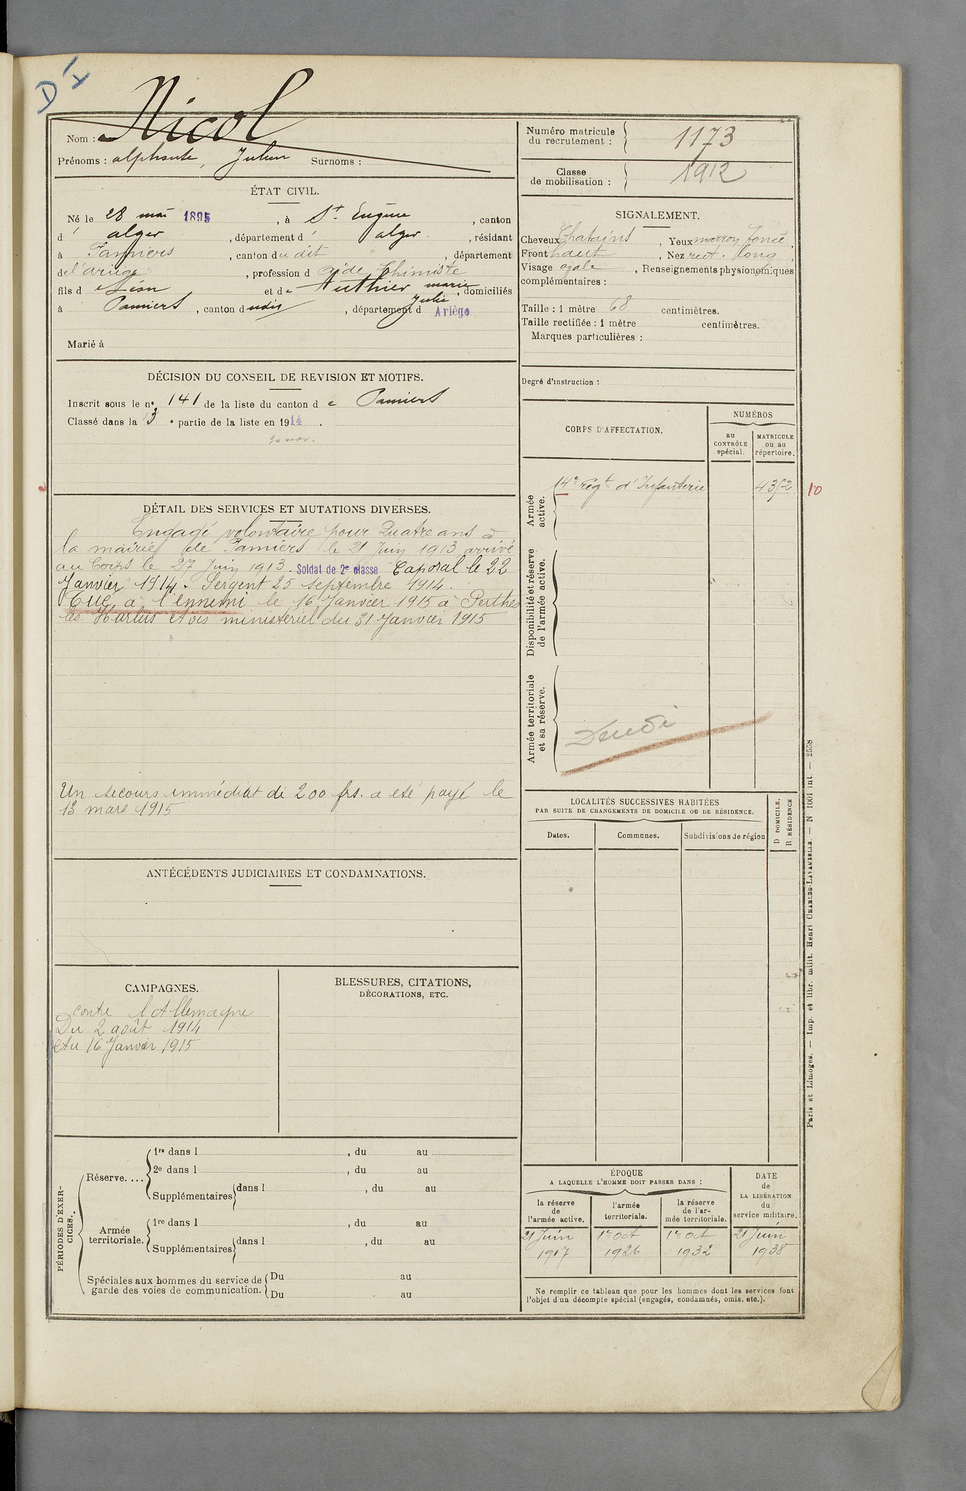 D I
Nom : Nicol
Prénoms : alphonse, Julien Surnoms :
ÉTAT CIVIL.
Né le 28 mai 1895, à St Eugène, canton
d' alger, département d' alger, résidant
à Pamiers, canton du dit, département
de l'ariège, profession d aide Chimiste
fils de Léon et de Authier marie Julie, domiciliés
à Pamiers, canton dudit, département d Ariège
Marié à
DÉCISION DU CONSEIL DE REVISION ET MOTIFS.
Inscrit sous le n° 141 de la liste du canton de Pamiers
Classé dans la 3e partie de la liste en 1914.
DÉTAIL DES SERVICES ET MUTATIONS DIVERSES.
Engagé volontaire pour Quatre ans à
la mairie de Pamiers le 21 Juin 1913 arrivé
au Corps le 27 Juin 1913. Soldat de 2e classe Caporal le 22
Janvier 1914. Sergent 25 septembre 1914.
Tué à l'ennemi le 16 Janvier 1915 à Perthes
les Hurlus Avis ministériel du 31 Janvier 1915
Un secours immédiat de 200 frs. a été payé le
13 mars 1915
ANTÉCÉDENTS JUDICIAIRES ET CONDAMNATIONS.
CAMPAGNES.
contre l'Allemagne
Du 2 août 1914
Au 16 Janvier 1915
BLESSURES, CITATIONS,
DÉCORATIONS, ETC.
PÉRIODES D'EXERCICES.
Réserve....
1re dans l , du au
2e dans l , du au
Supplémentaires dans l , du au
Armée
territoriale.
1re dans l , du au
Supplémentaires dans l , du au
Spéciales aux hommes du service de
garde des voies de communication.
Du au
Du au
Numéro matricule
du recrutement : 1173
Classe
de mobilisation : 1912
SIGNALEMENT.
Cheveux Chatains, Yeux marron foncé.
Front haut, Nez rect. long
Visage ovale, Renseignements physionomiques
complémentaires :
Taille : 1 mètre 68 centimètres.
Taille rectifiée : 1 mètre centimètres.
Marques particulières :
Degré d'instruction :
CORPS D'AFFECTATION.
NUMÉROS
au
CONTRÔLE
spécial.
MATRICULE
ou au
répertoire.
Armée
active.
14e Régt d'Infanterie 4352 10
Disponibilité et réserve
de l'armée active.
Armée territoriale
et sa réserve.
LOCALITÉS SUCCESSIVES HABITÉES
PAR SUITE DE CHANGEMENTS DE DOMICILE OU DE RÉSIDENCE.
Dates.
Communes.
Subdivisions de région
D DOMICILE.
R RÉSIDENCE
ÉPOQUE
A LAQUELLE L'HOMME DOIT PASSER DANS :
DATE
de
LA LIBÉRATION
du
service militaire.
la réserve
de
l'armée active.
l'armée
territoriale.
la réserve
de l'ar-
mée territoriale.
21 Juin
1917
1er oct
1926
1er oct
1932
21 Juin
1938
Ne remplir ce tableau que pour les hommes dont les services font
l'objet d'un décompte spécial (engagés, condamnés, omis, etc.).
Paris et Limoges. — Imp. et libr. milit. Henri CHARLES-LAVAUZELLE. — N° 1001 int — 2558